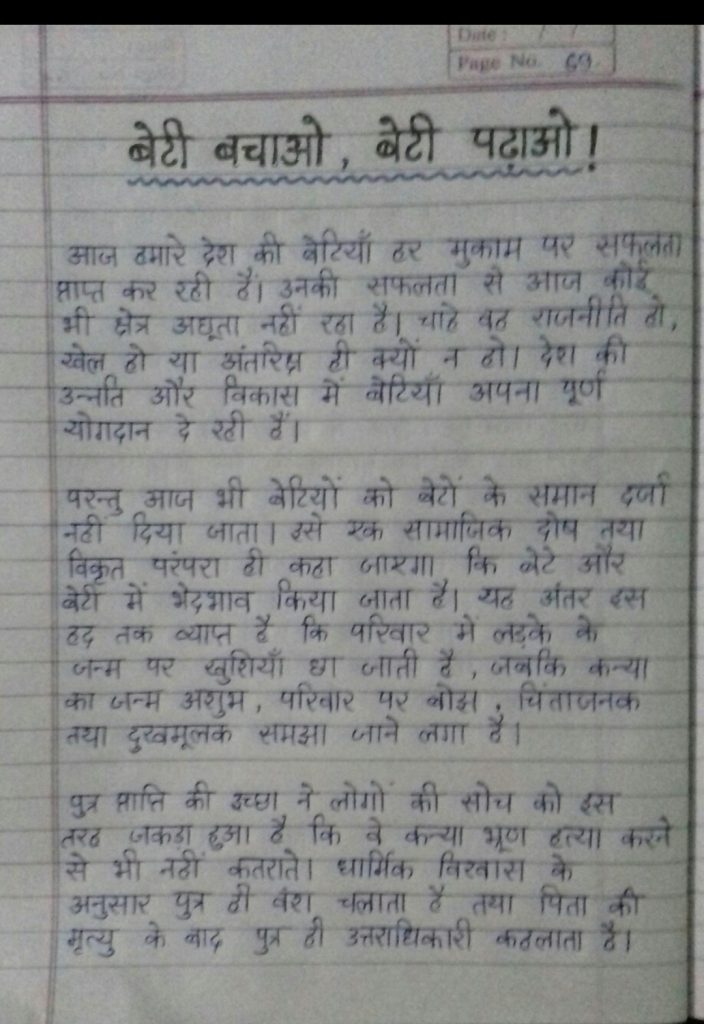 Date : / /
Page No. 69
बेटी बचाओ, बेटी पढ़ाओ!
आज हमारे देश की बेटियाँ हर मुकाम पर सफलता
प्राप्त कर रही हैं। उनकी सफलता से आज कोई
भी क्षेत्र अछूता नहीं रहा है। चाहे वह राजनीति हो,
खेल हो या अंतरिक्ष ही क्यों न हो। देश की
उन्नति और विकास में बेटियाँ अपना पूर्ण
योगदान दे रही हैं।
परन्तु आज भी बेटियों को बेटों के समान दर्जा
नहीं दिया जाता। इसे एक सामाजिक दोष तथा
विकृत परंपरा ही कहा जाएगा कि बेटे और
बेटी में भेदभाव किया जाता है। यह अंतर इस
हद तक व्याप्त है कि परिवार में लड़के के
जन्म पर खुशियाँ छा जाती है, जबकि कन्या
का जन्म अशुभ, परिवार पर बोझ, चिंताजनक
तथा दुखमूलक समझा जाने लगा है।
पुत्र प्राप्ति की इच्छा ने लोगों की सोच को इस
तरह जकड़ा हुआ है कि वे कन्या भ्रूण हत्या करने
से भी नहीं कतराते। धार्मिक विश्वास के
अनुसार पुत्र ही वंश चलाता है तथा पिता की
मृत्यु के बाद पुत्र ही उत्तराधिकारी कहलाता है।